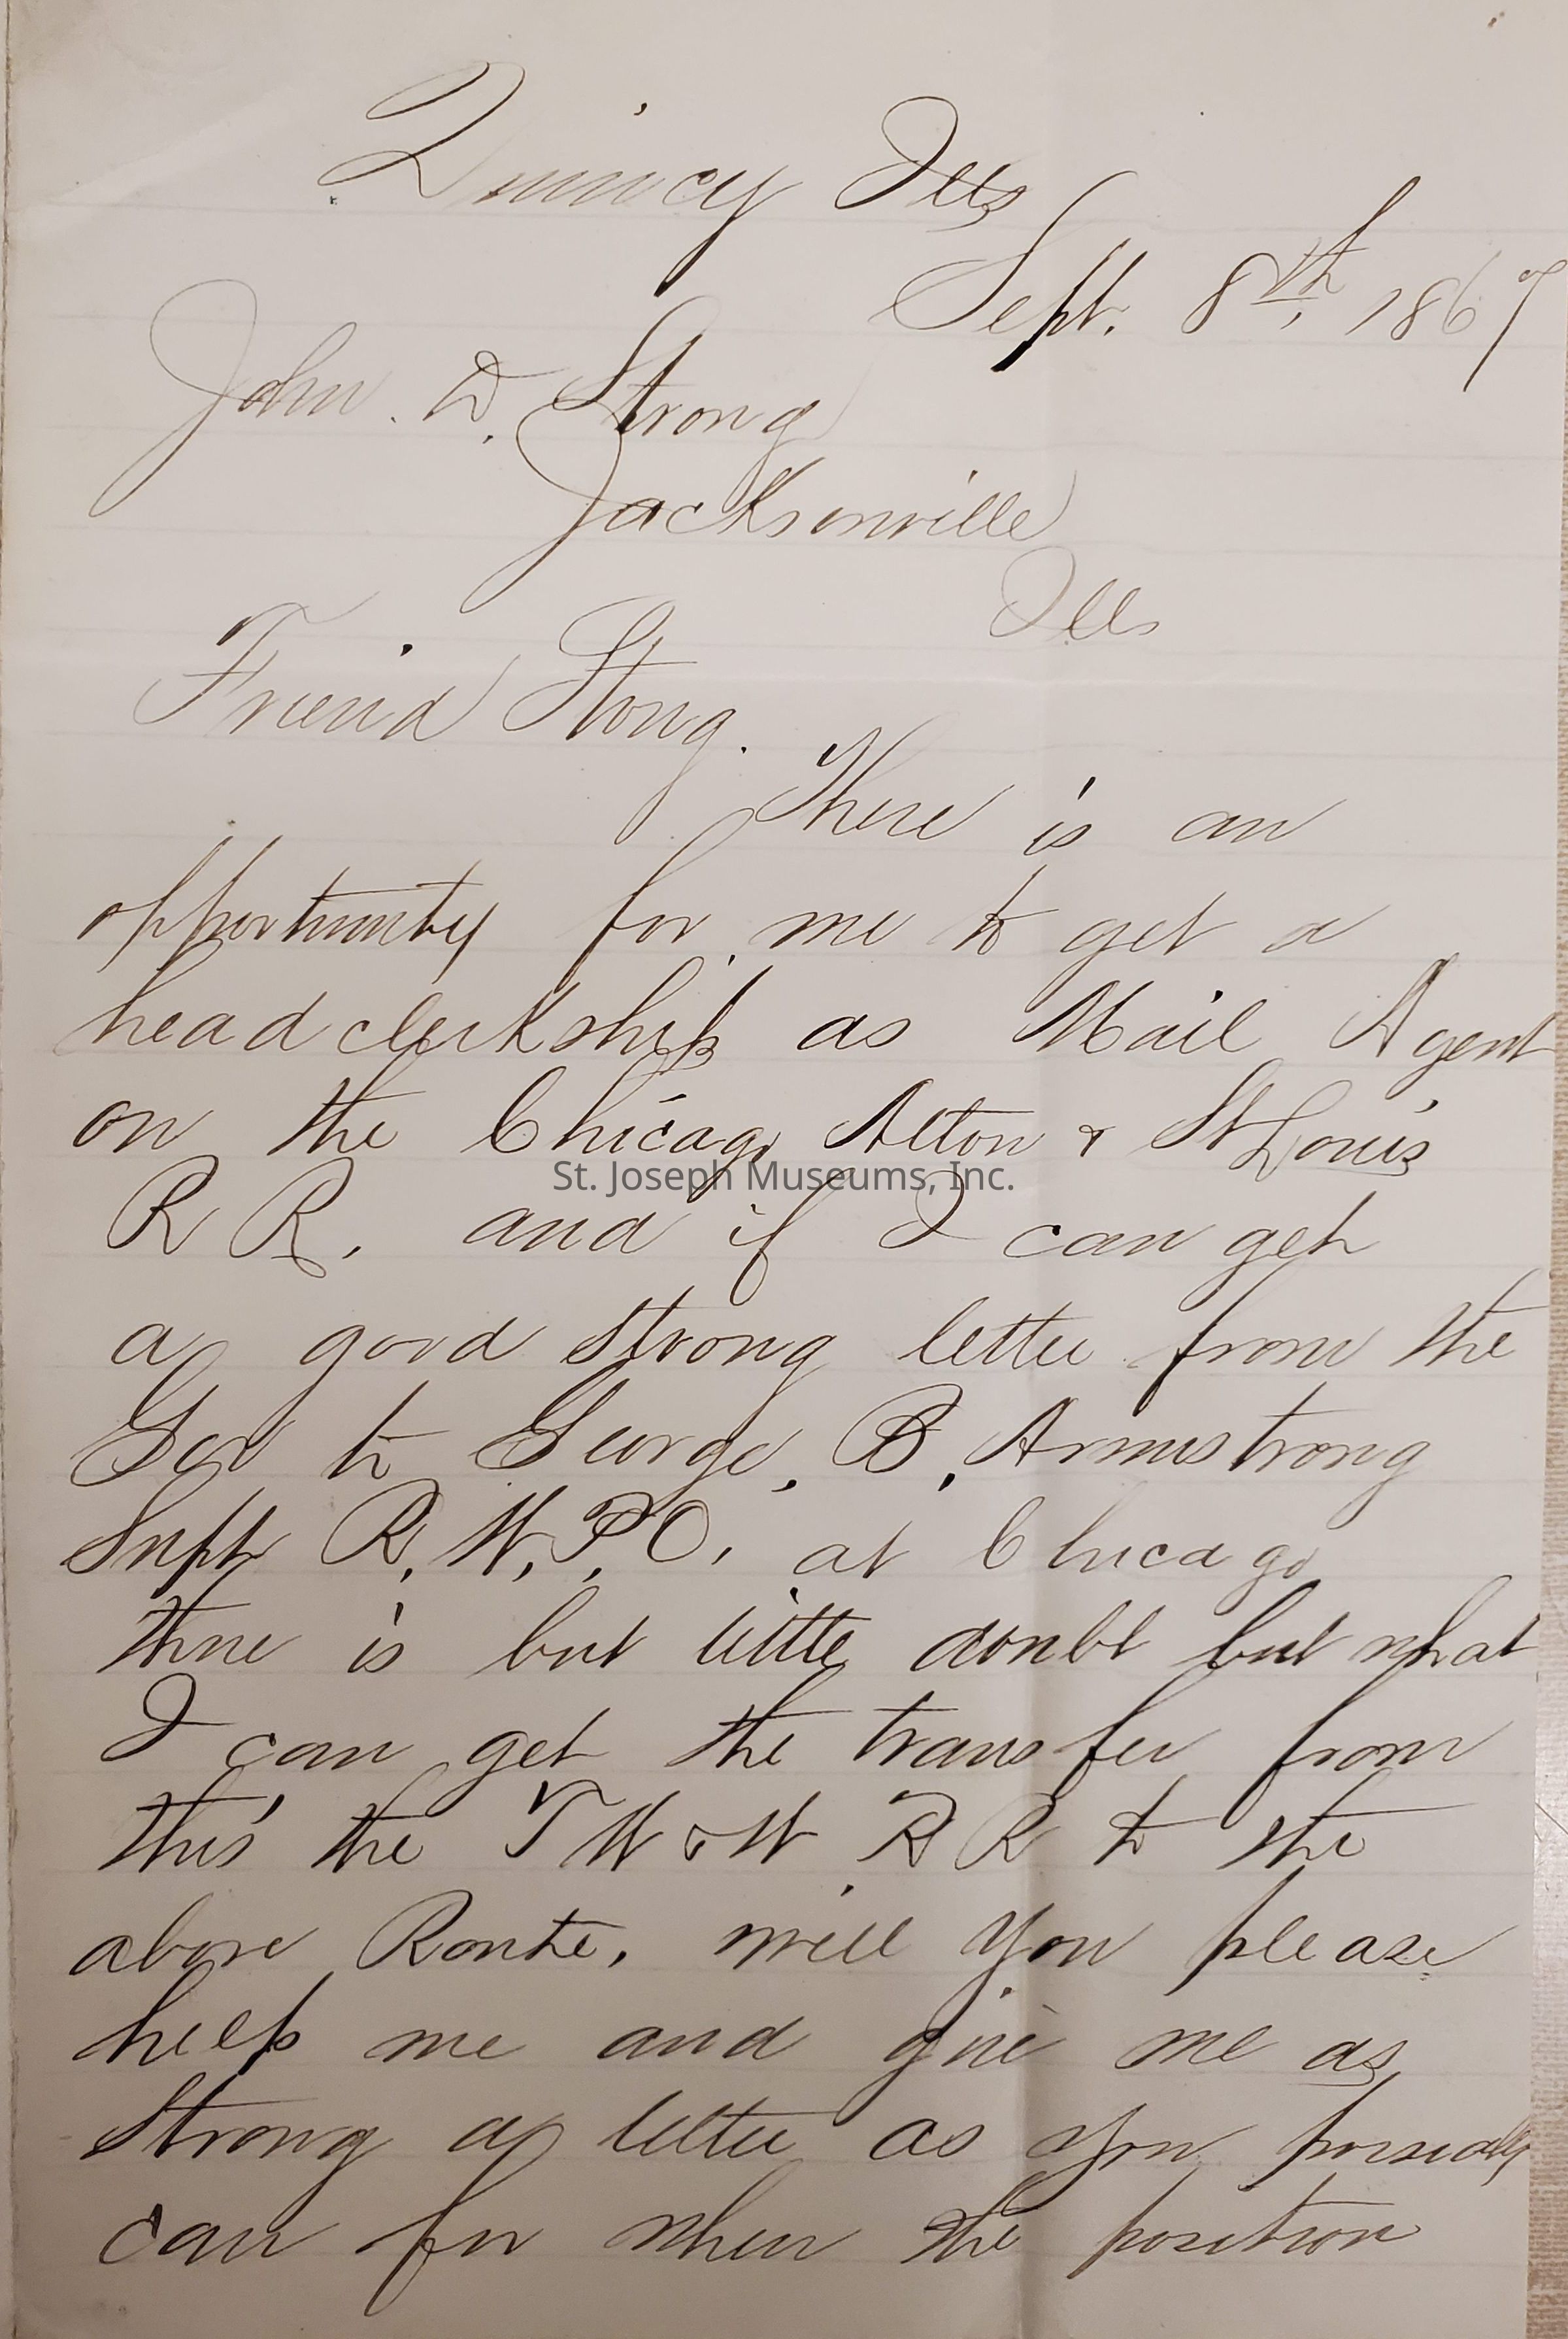 Quincy Ills
Sept. 8th, 1867
John. D. Strong
Jacksonville
Ills
Friend Stong.
There is an
opportunity for me to get a
head clerkship as Mail Agent
on the Chicago Alton & St Louis
St. Joseph Museums, Inc.
R R. and if I can get
a good strong letter from the
Gov to George. B. Armstrong
Supt R. W. P. O. at Chicago
there is but little doubt but what
I can get the transfer from
this the T W & W R R to the
above Route. will you please
help me and give me as
strong a letter as you possibly
can for when the position